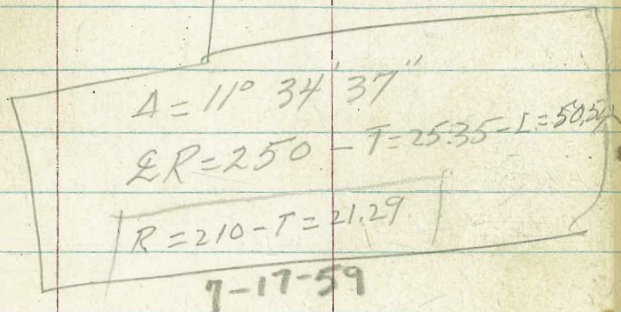 Δ = 11° 34' 37"
℄R = 250 - T = 25.35 - L = 50.5
R = 210 - T = 21.29
7-17-59